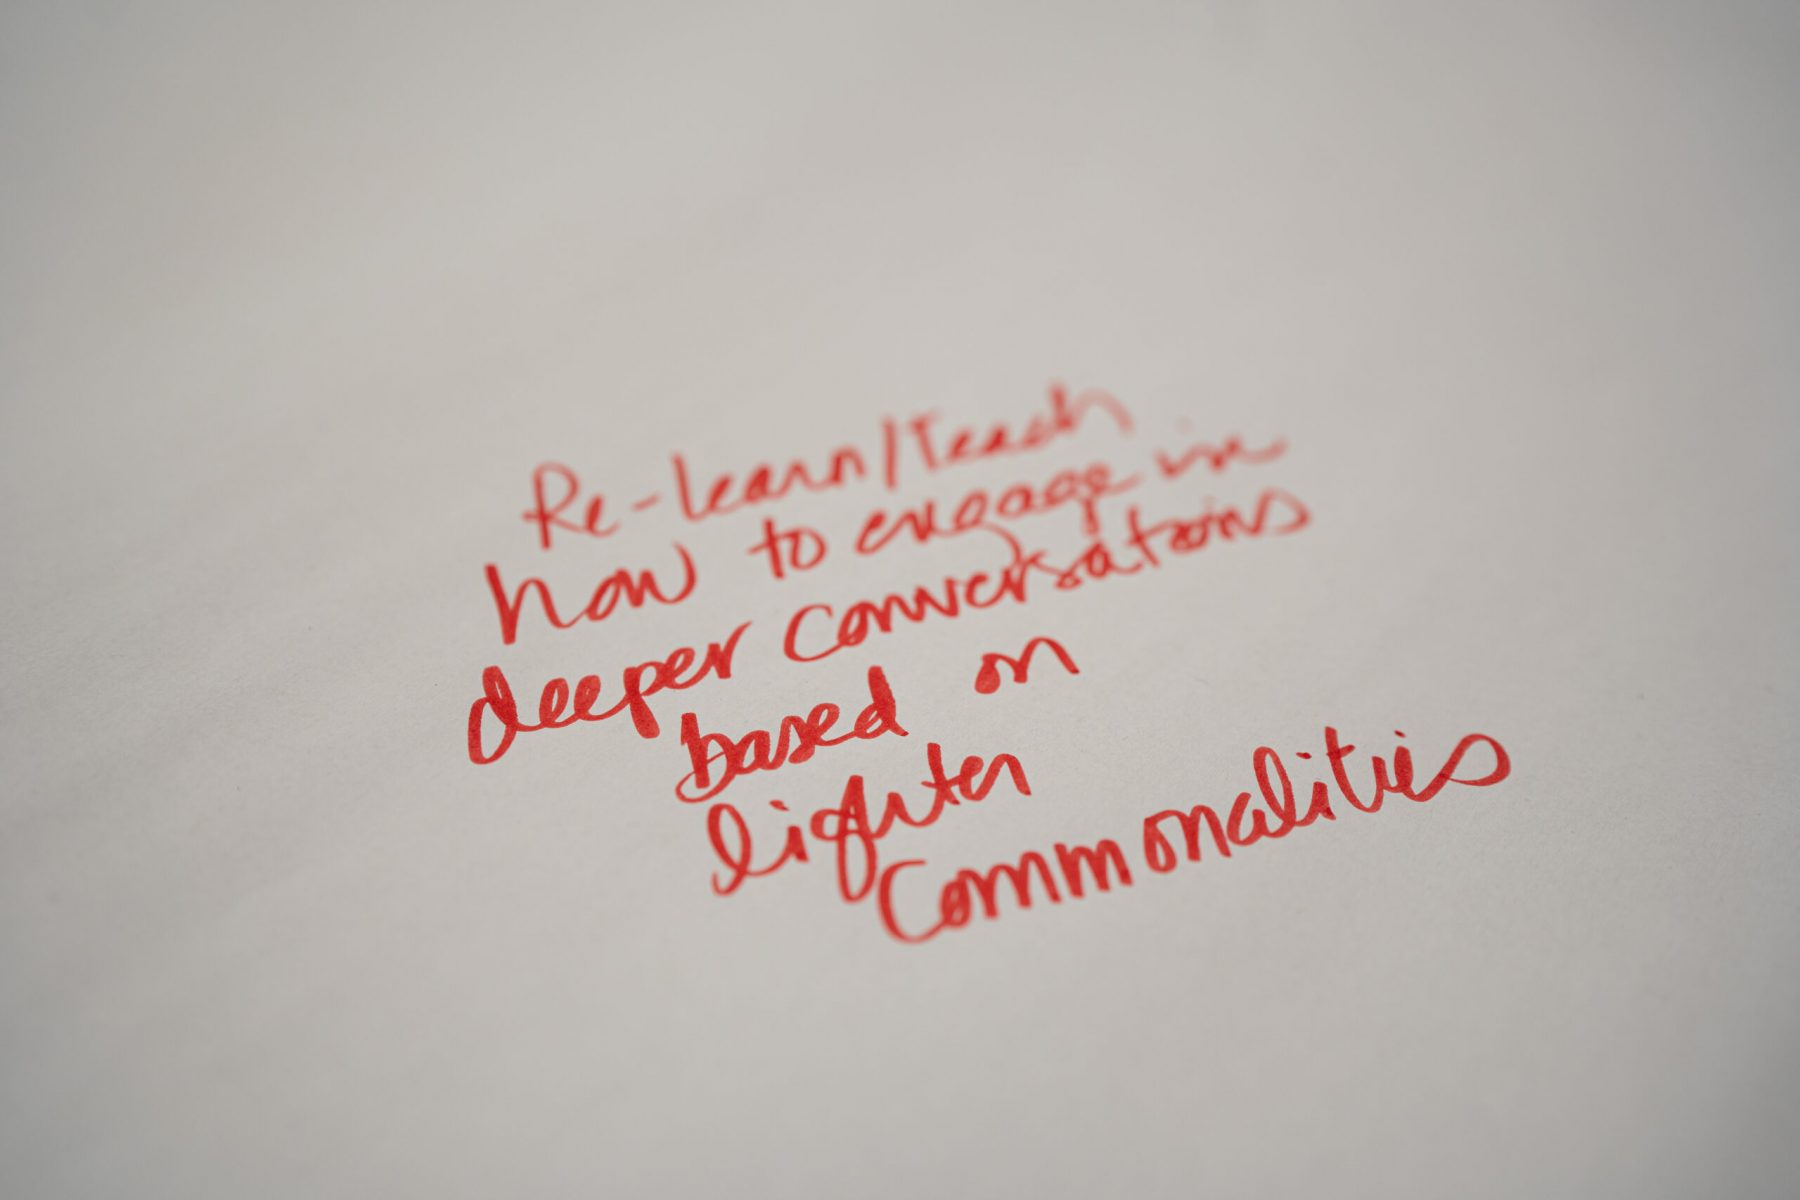 Re-learn/Teach
how to engage in
deeper conversations
based on
lighter
Commonalities